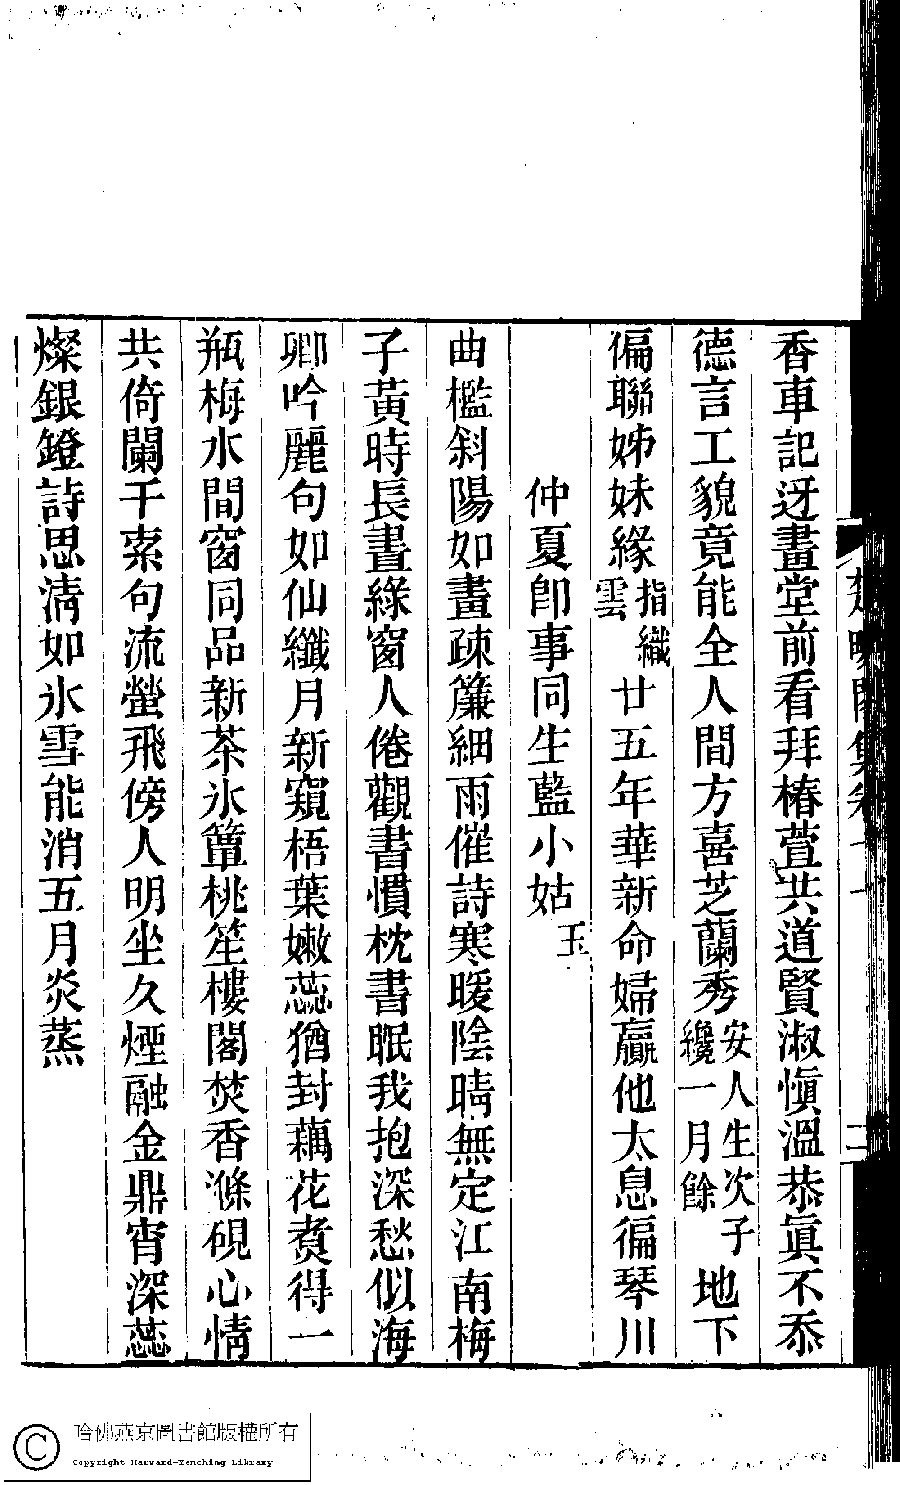 香車記迓畫堂前看拜椿萱共道賢淑慎溫恭眞不忝
德言工貌竟能全人間方喜芝蘭秀安人生次子纔一月餘地下
偏聯姊妹緣指織雲廿五年華新命婦贏他太息徧琴川
仲夏卽事同生藍小姑玉
曲檻斜陽如畫疎簾細雨催詩寒暖陰晴無定江南梅
子黃時長晝綠窗人倦觀書慣枕書眠我抱深愁似海
卿吟麗句如仙纖月新窺梧葉嫩蕊猶封藕花煑得一
瓶梅水閒窗同品新茶氷簟桃笙樓閣焚香滌硯心情
共倚闌干索句流螢飛傍人明坐久煙融金鼎宵深蕊
燦銀鐙詩思淸如氷雪能消五月炎蒸
哈佛燕京圖書館版權所有
Copyright Harvard-Yenching Library